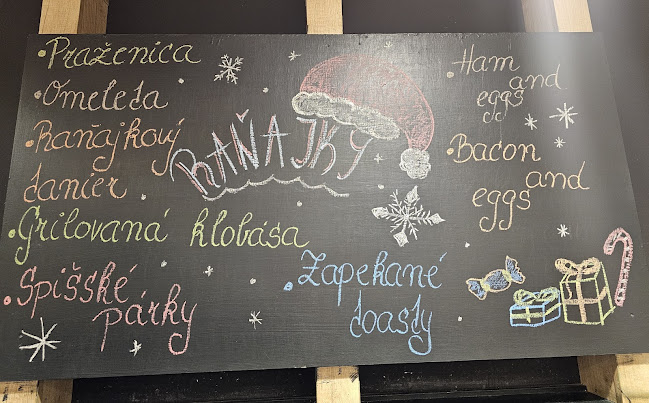 RAŇAJKY
• Praženica
• Omeleta
• Raňajkový
tanier
• Grilovaná klobása
• Spišské
párky
• Zapekané
toasty
• Ham
and
eggs
• Bacon
and
eggs